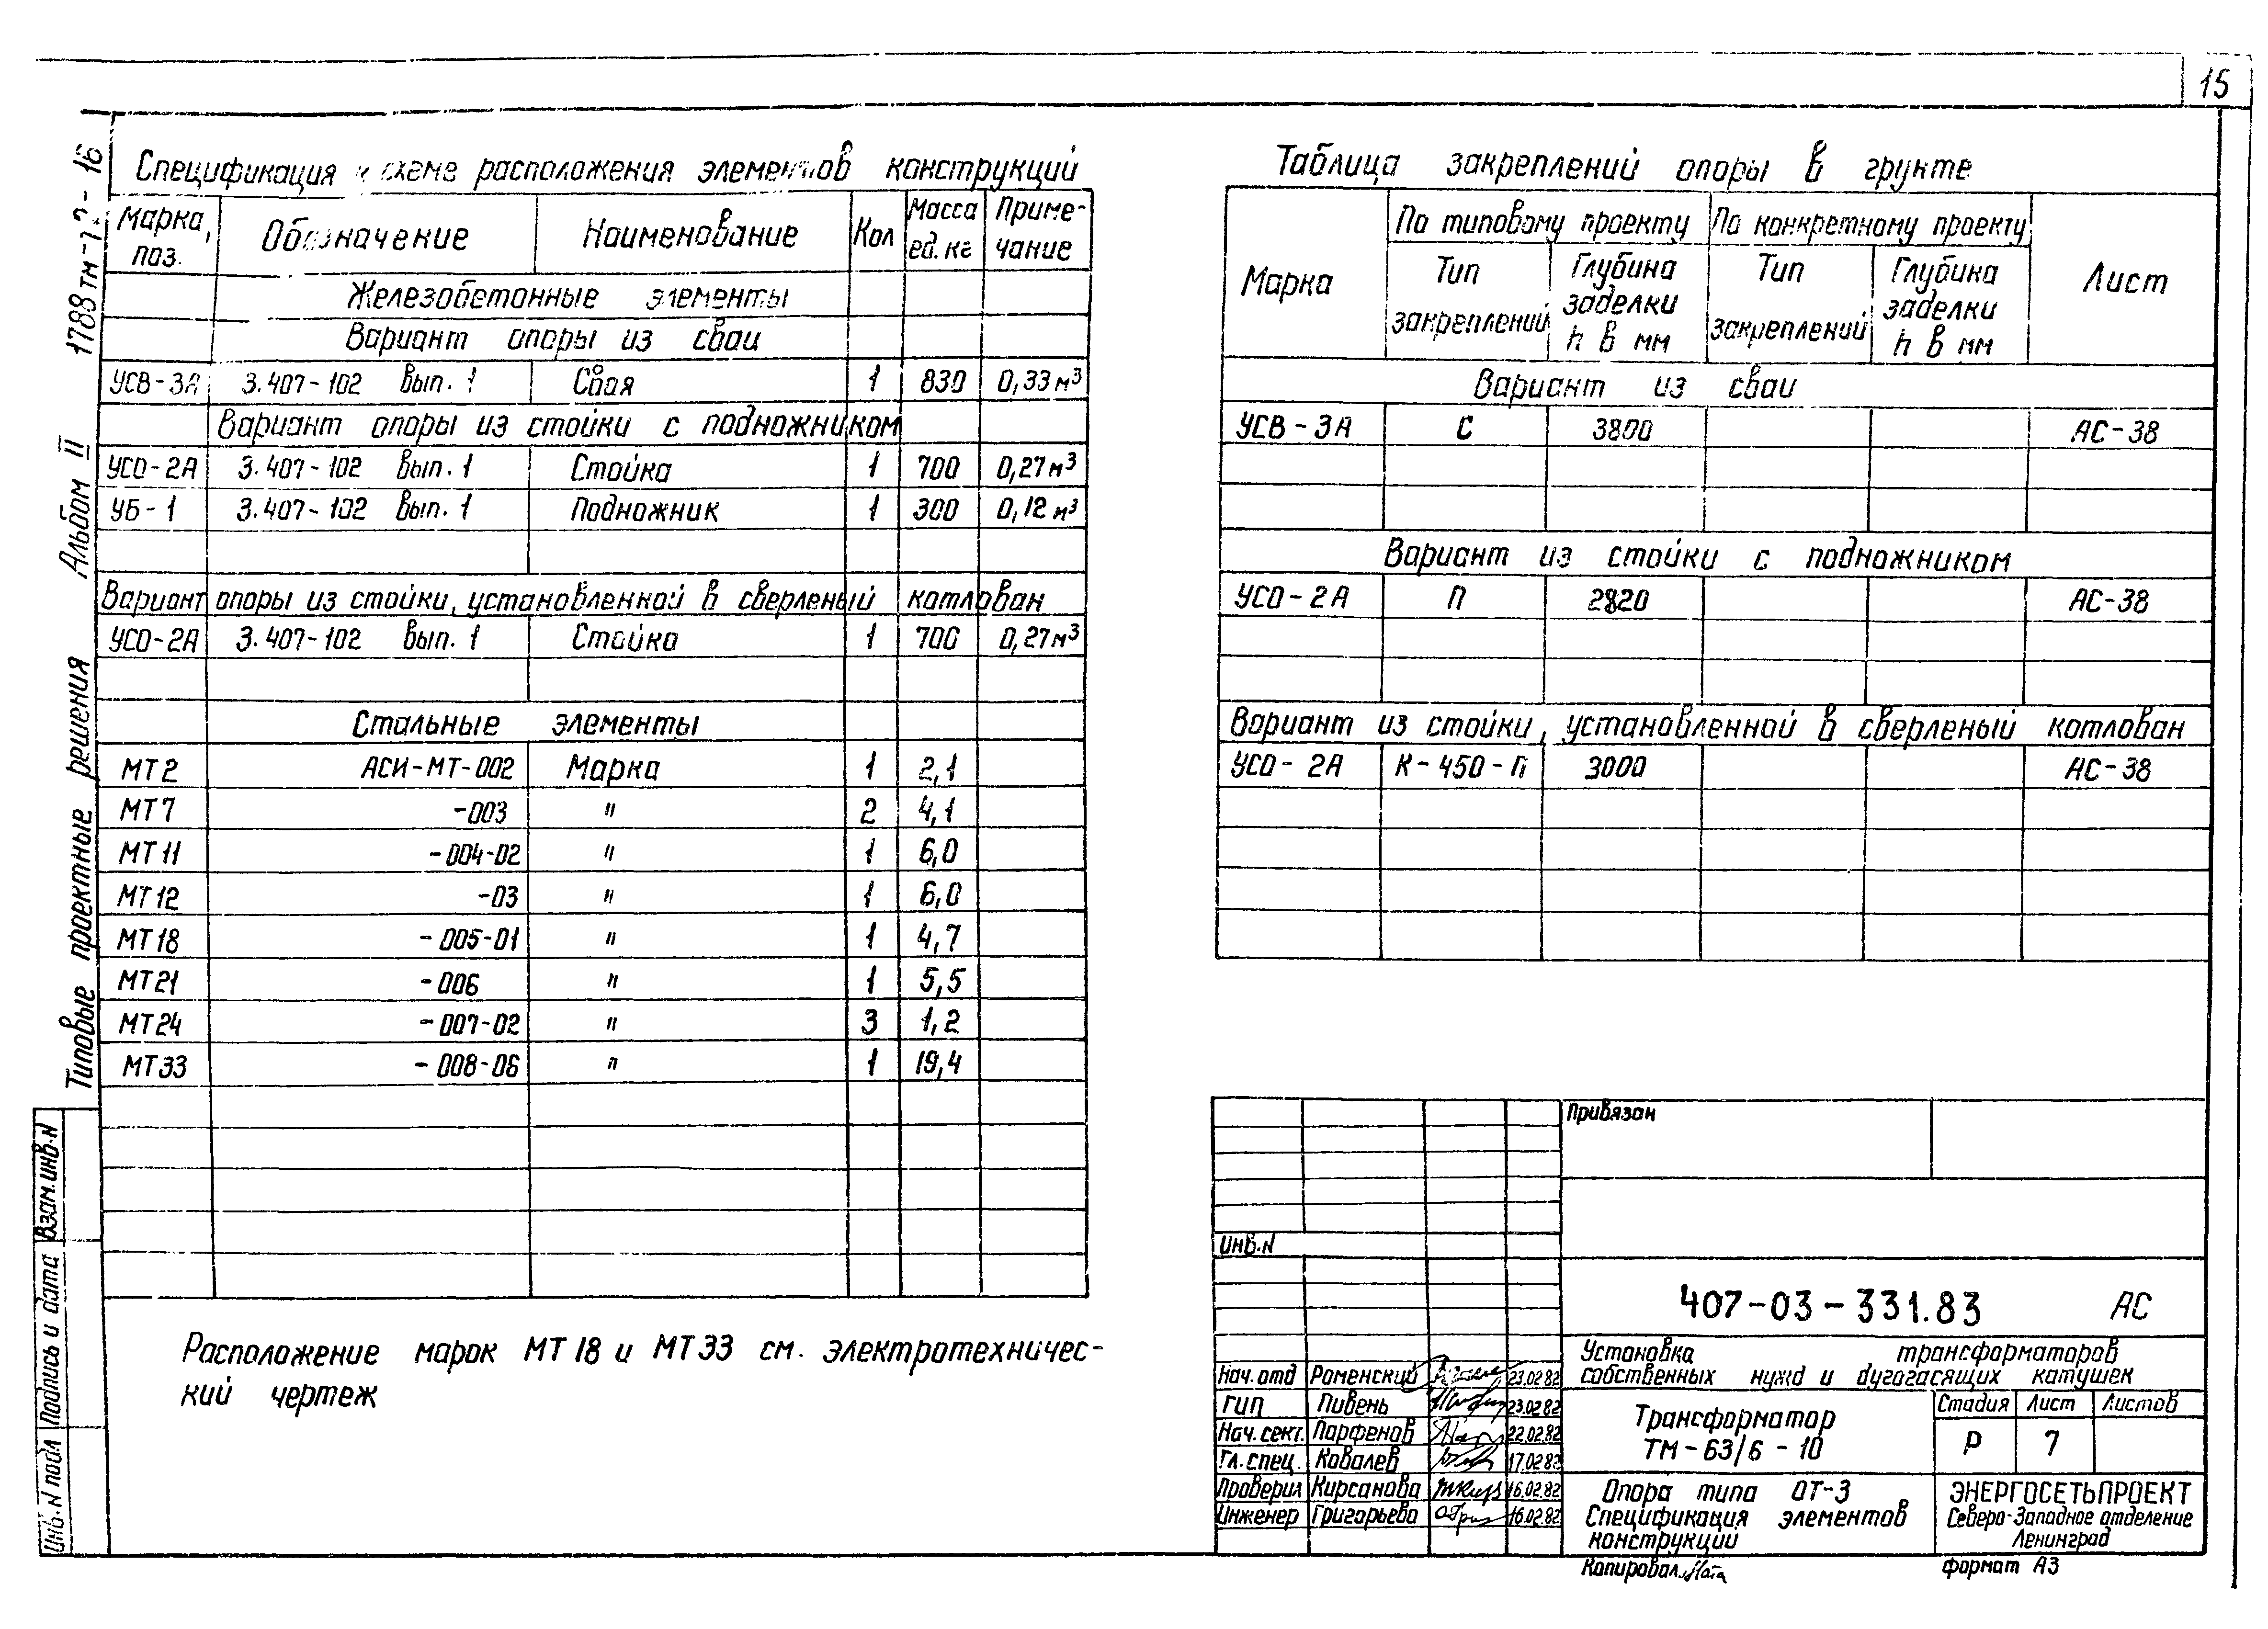 15
Спецификация к схеме расположения элементов конструкций
Марка, поз. Обозначение Наименование Кол Масса ед. кг Приме-чание
Железобетонные элементы
Вариант опоры из сваи
УСВ-3А 3.407-102 Вып. 1 Свая 1 830 0,33м³
Вариант опоры из стойки с подножником
УСО-2А 3.407-102 Вып. 1 Стойка 1 700 0,27м³
УБ-1 3.407-102 Вып. 1 Подножник 1 300 0,12м³
Вариант опоры из стойки, установленной в сверленый котлован
УСО-2А 3.407-102 Вып. 1 Стойка 1 700 0,27м³
Стальные элементы
МТ2 АСИ-МТ-002 Марка 1 2,1
МТ7 -003 " 2 4,1
МТ11 -004-02 " 1 6,0
МТ12 -03 " 1 6,0
МТ18 -005-01 " 1 4,7
МТ21 -006 " 1 5,5
МТ24 -007-02 " 3 1,2
МТ33 -008-06 " 1 19,4
Расположение марок МТ18 и МТ33 см. электротехничес-
кий чертеж
Таблица закреплений опоры в грунте
Марка По типовому проекту По конкретному проекту Лист
Тип закреплений Глубина заделки h в мм Тип закреплений Глубина заделки h в мм
Вариант из сваи
УСВ-3А С 3800 АС-38
Вариант из стойки с подножником
УСО-2А П 2820 АС-38
Вариант из стойки, установленной в сверленый котлован
УСО-2А К-450-П 3000 АС-38
Привязан
Инв.N
407-03-331.83 АС
Установка трансформаторов
собственных нужд и дугогасящих катушек
Нач.отд Роменский 23.02.82
ГИП Пивень 23.02.82
Нач.сект. Парфенов 22.02.82
Гл.спец. Ковалев 17.02.82
Проверил Кирсанова 16.02.82
Инженер Григорьева 16.02.82
Трансформатор
ТМ-63/6-10
Стадия Лист Листов
Р 7
Опора типа ОТ-3
Спецификация элементов
конструкций
ЭНЕРГОСЕТЬПРОЕКТ
Северо-Западное отделение
Ленинград
Копировал
формат А3
Типовые проектные решения Альбом II 1788тм-
Инв.N подл Подпись и дата Взам.инв.N